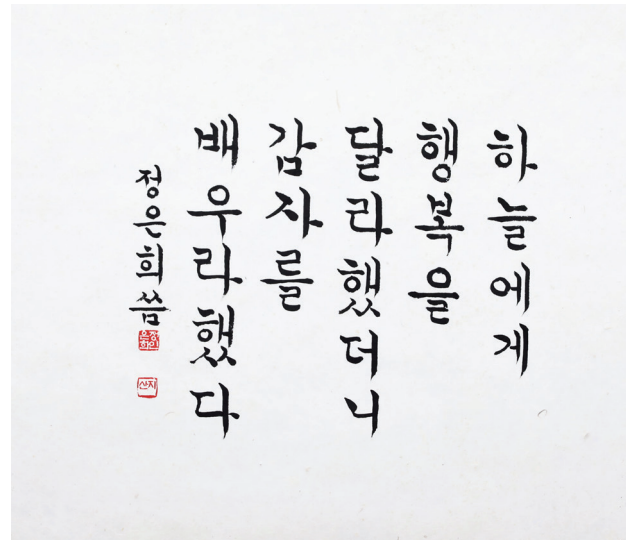 하늘에게
행복을
달라했더니
감자를
배우라했다
정은희 씀